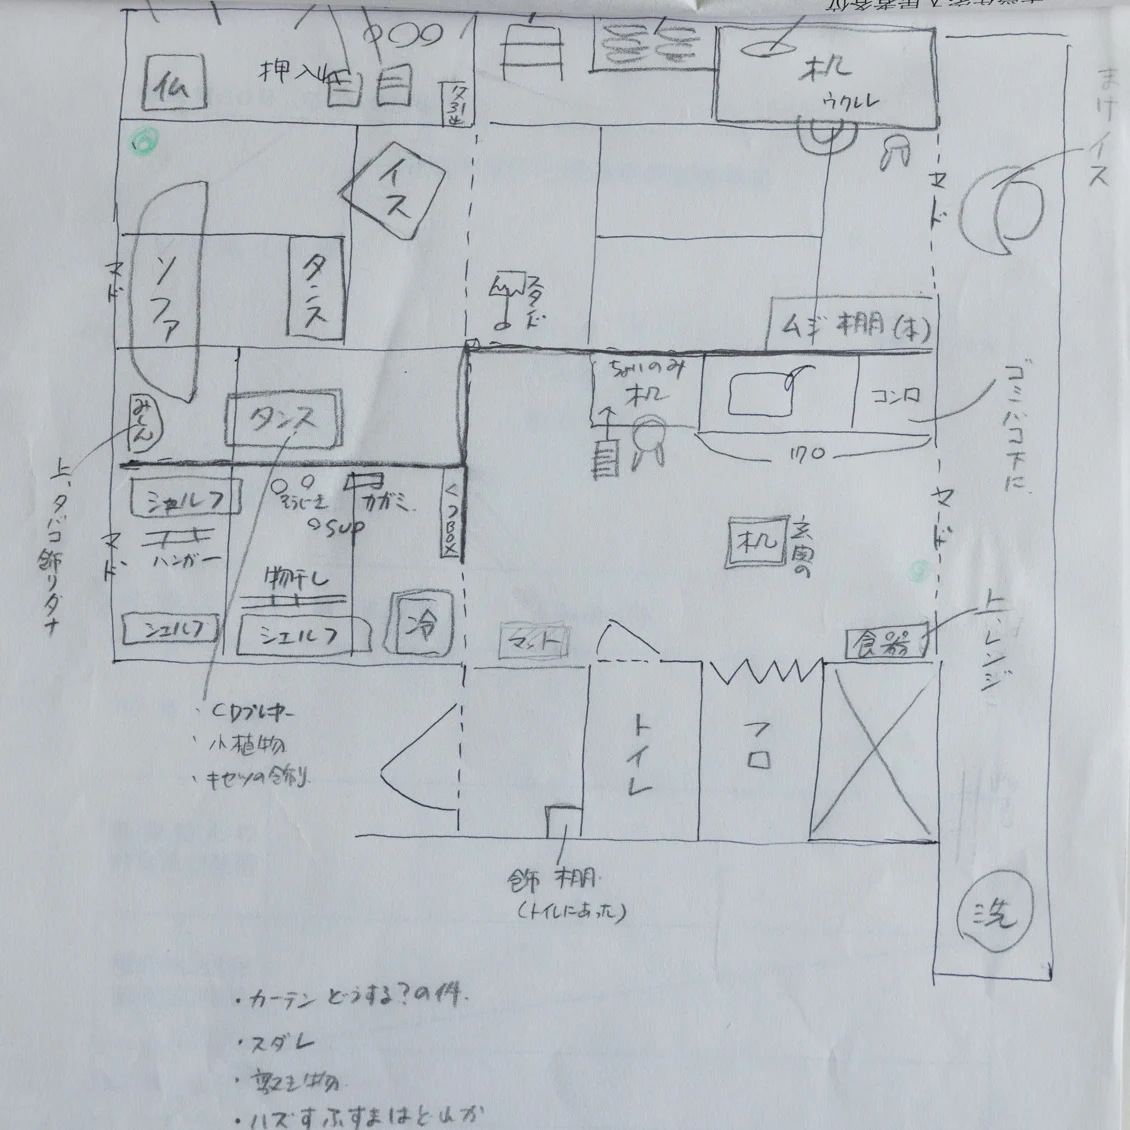 仏
押入れ
机
ウクレレ
イス
マド
まけイス
ソファ
タンス
マド
スタンド
ムジ 棚(木)
ちょいのみ
机
コンロ
170
ゴミバコ下に
みしん
タンス
上、タバコ飾りダナ
シェルフ
そうじき
カガミ
SUP
クツBOX
マド
ハンガー
物干し
シェルフ
シェルフ
冷
机
玄関の
マド
マット
食器
上、レンジ
・CDプレーヤー
・小植物
・キセツの飾り
トイレ
フロ
飾 棚
(トイレにあった)
洗
・カーテンどうする?の件.
・スダレ
・敷き物
・ハズすふすまはどれか